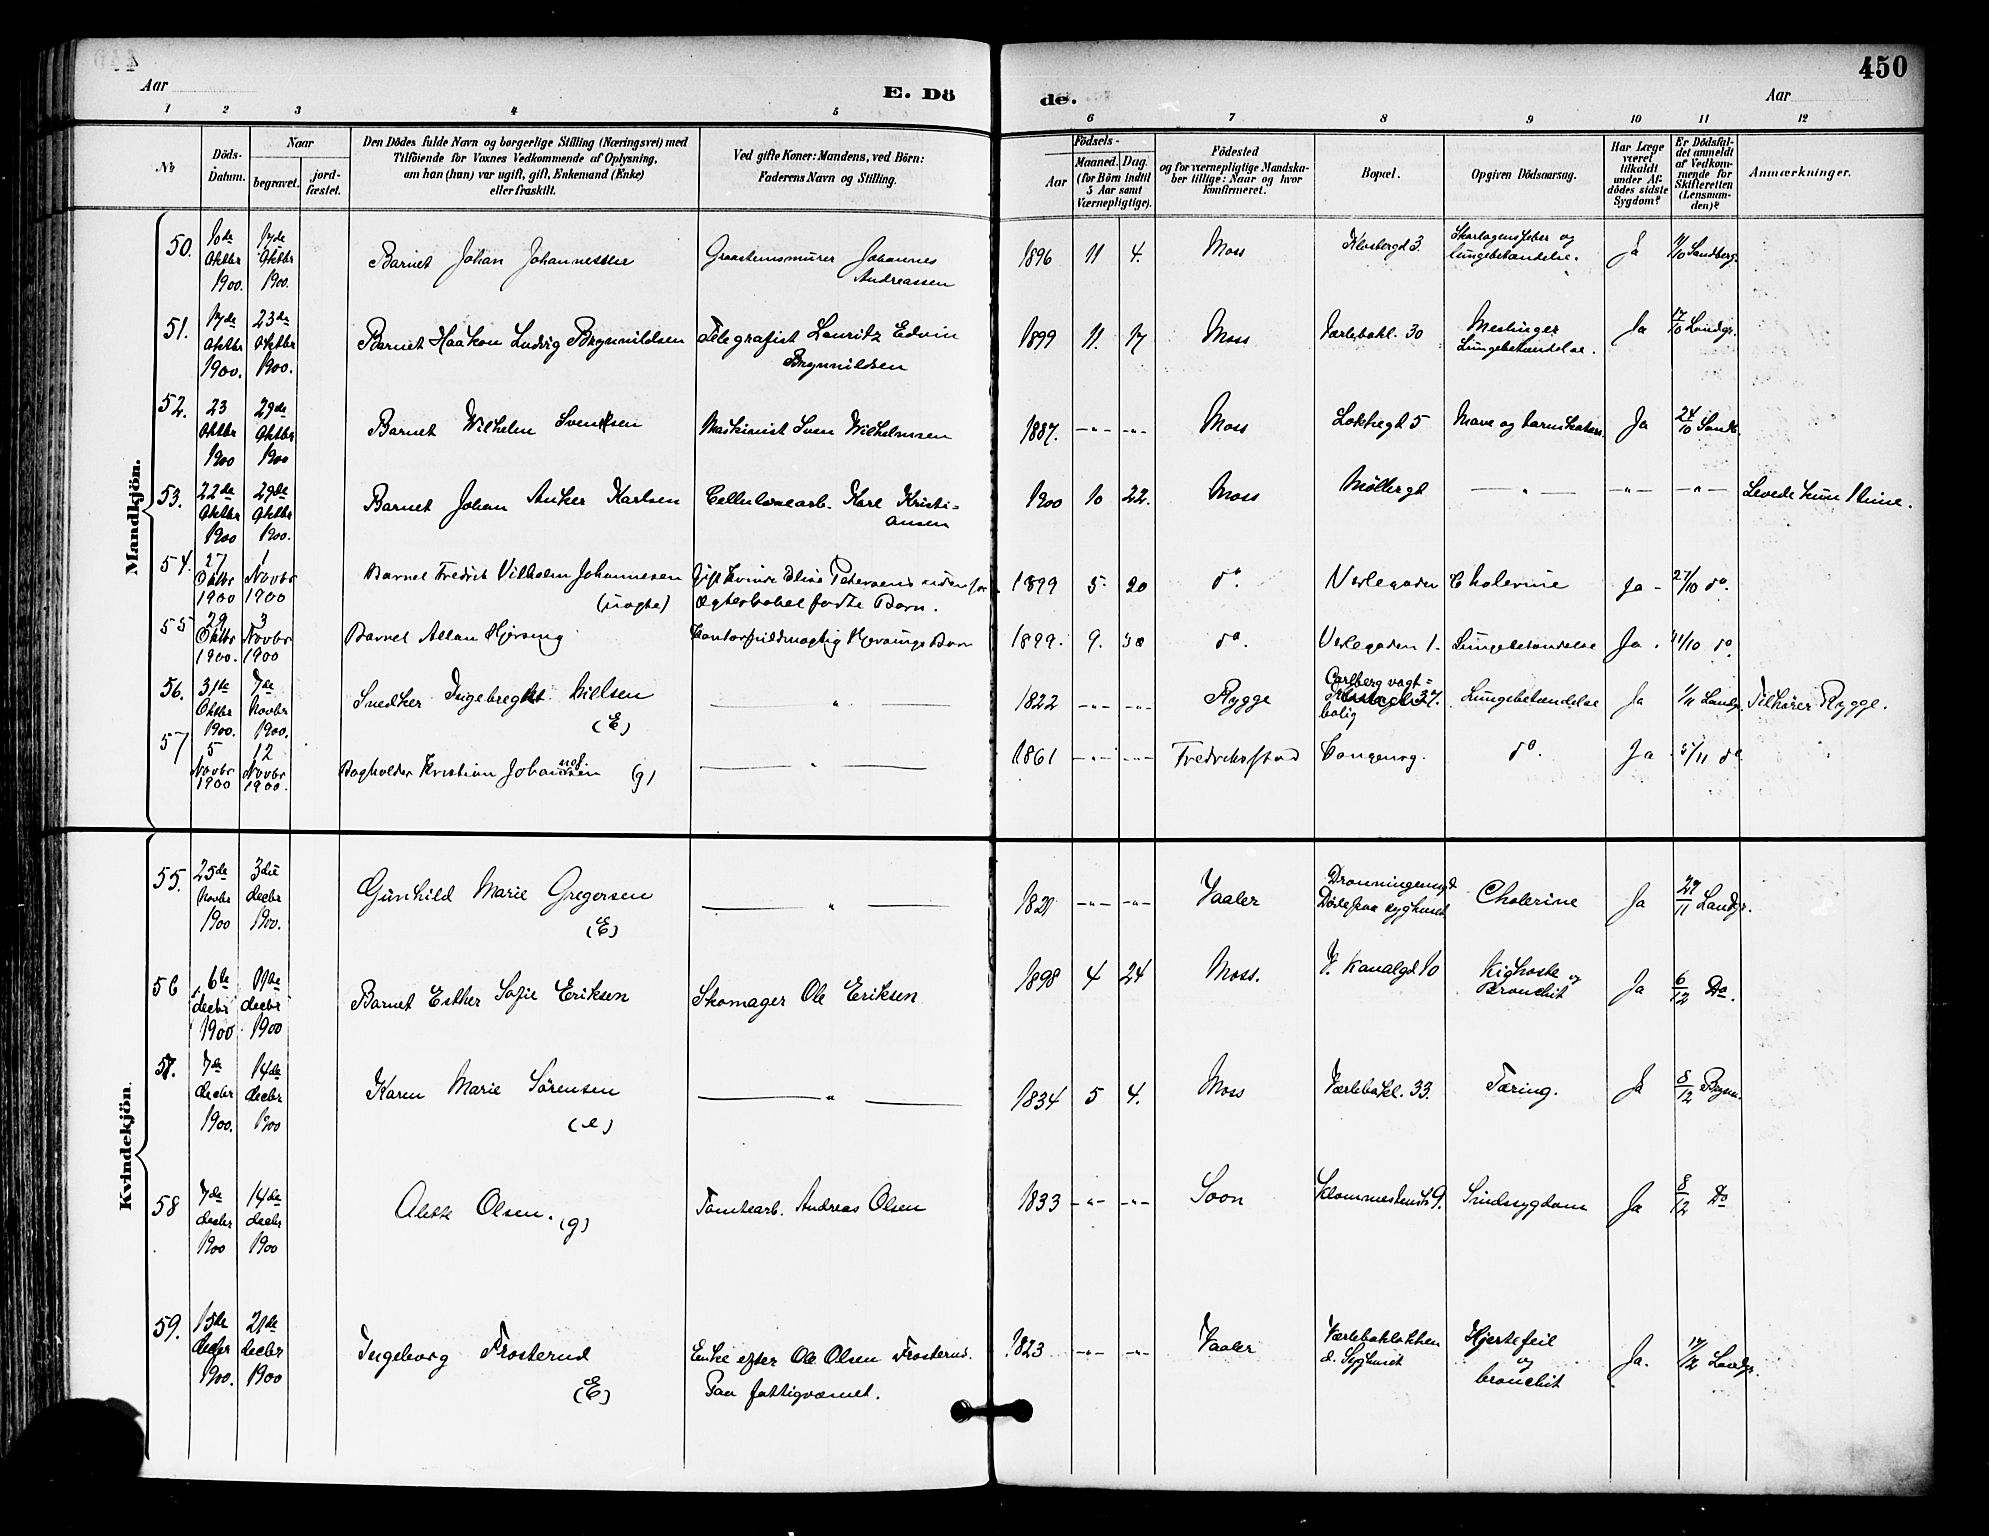 450
Aar
E. Dö
de.
Aar
1 2 3 4 5 6 7 8 9 10 11 12
No
Döds-Datum.
Naar
begravet.
jord-fæstet.
Den Dödes fulde Navn og borgerlige Stilling (Næringsvei) med
Tilföiende for Voxnes Vedkommende af Oplysning,
om han (hun) var ugift, gift, Enkemand (Enke)
eller fraskilt.
Ved gifte Koner: Mandens, ved Börn:
Faderens Navn og Stilling.
Födsels-
Aar
Maaned. Dag.
(for Börn indtil
5 Aar samt
Værnepligtige).
Födested
og for værnepligtige Mandska-
ber tillige: Naar og hvor
konfirmeret.
Bopæl.
Opgiven Dödsaarsag.
Har Læge
været
tilkaldt
under Af-
dödes sidste
Sygdom?
Er Dödsfal-
det anmeldt
af Vedkom-
mende for
Skifteretten
(Lensman-
den)?
Anmærkninger.
Mandkjön.
50. 10de Oktbr 1900. 17de Oktbr 1900. Barnet Johan Johannessen Graastensmurer Johannes Andreassen 1896 11 4. Moss Klostergd 3. Skarlagensfeber og lungebetændelse. Ja 11/10 Sandberg
51. 17de Oktbr 1900. 23de Oktbr 1900. Barnet Haakon Ludvig Brynnildsen Telegrafist Lauritz Edvin Brynnildsen 1899 11. 17 Moss Værlebakl. 30 Meslinger Lungebetændelse. Ja 17/10 Landgr.
52. 23 Oktbr 1900 29de Oktbr 1900 Barnet Wilhelm Svendsen Maskinist Sven Wilhelmsen 1887. -"- -"- Moss Lokkegd 5 Mave og tarmkatarr. Ja 24/10 Sandb.
53. 22de Oktbr 1900 29de Oktbr 1900. Barnet Johan Anker Karlsen Cellulosearb. Karl Kristi= ansen 1900 10 22. Moss Møllergd — " — -"- -"- Levede kun 1 time.
54. 27 Oktbr 1900 1 Novbr 1900 Barnet Fredrik Vilhelm Johannesen (uægte) Gift Kvinde Elise Petersens udenfor Ægteskabet fødte Barn. 1899 5. 20 do. Verlegaden Cholerine Ja - 27/10 do.
55 29 Oktbr 1900. 3 Novbr 1900 Barnet Allan Hjørsing Kontorfuldmægtig Hjørsings Barn 1899. 9. 30 do. Verlegaden 1. Lungebetændelse Ja. 31/10 do
56. 31te Oktbr 1900. 7de Novbr 1900. Snedker Ingebregt Nilsen (E) — " — 1822 -"- -"- Rygge Carlberg vogt= bolig Lungebetændelse Ja 1/11 Landgr. Tilhører Rygge.
57 5 Novbr 1900 12 Novbr 1900. Bogholder Kristian Johannesen (g) — " — 1861 -"- -"- Fredrikstad Cangenrg. do. Ja 5/11 do
Kvindekjön.
55. 25de Novbr 1900 3die decbr 1900. Gunhild Marie Gregersen (E) — " — 1821 -"- -"- Vaaler Dronningensgd Døde paa syghuset Cholerine Ja 27/11 Landgr.
56 6te decbr 1900 11te decbr 1900 Barnet Esther Sofie Eriksen Skomager Ole Eriksen 1898 4 24 Moss. V. Kanalgd 10 Kighoste og Bronchit Ja 6/12 Do.
57. 7de decbr 1900. 14de decbr 1900 Karen Marie Sørensen (e) — " — 1834 5 4. Moss Værlebakl. 33. Tæring. Ja 8/12 Brynn.
58 7de decbr 1900 14de decbr 1900 Alette Olsen. (g) Tomtearb. Andreas Olsen 1833 -"- -"- Soon 9. Sindssygdom Ja 8/12 Do
59. 15de decbr 1900. 21de decbr 1900 Ingeborg Frosterud (E) Enke efter Ole Olsen Frosterud. Paa fattigvæsnet. 1823 -"- -"- Vaaler Værlebakløkken d. Syghuset Hjertefeil og bronchit Ja. 17/12 Landgr.